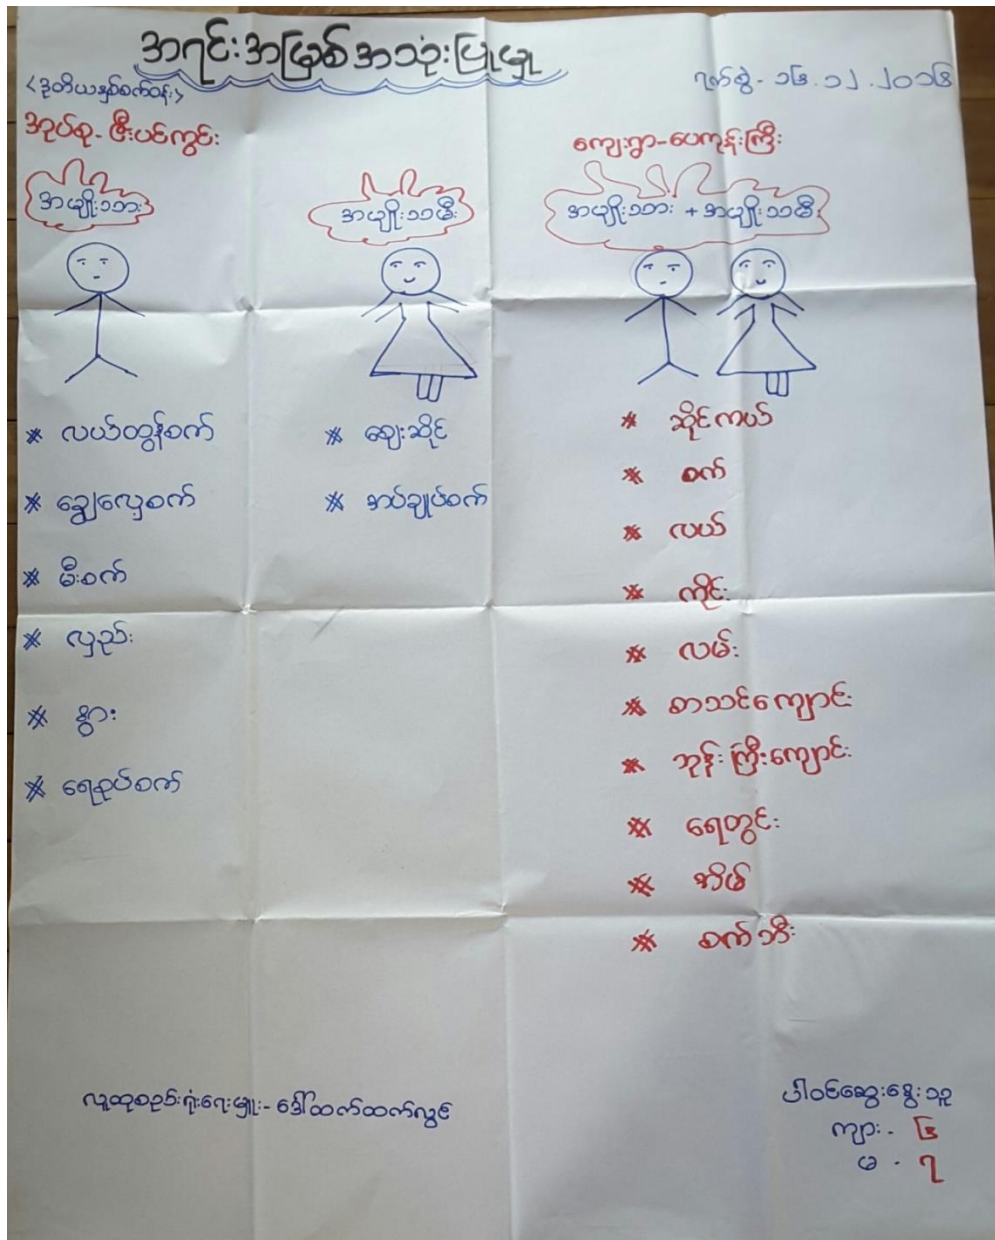 အရင်းအမြစ်အသုံးပြုမှု
<ဒုတိယနှစ်စက်ဝန်း>
ရက်စွဲ - ၁၆.၁၂.၂၀၁၆
အုပ်စု - ဇီးပင်ကွင်း
ကျေးရွာ-ပေကုန်းကြီး
အမျိုးသား
အမျိုးသမီး
အမျိုးသား + အမျိုးသမီး
* လယ်ထွန်စက်
* ချွေလှေ့စက်
* မီးစက်
* လှည်း
* နွား
* ရေစုပ်စက်
* ဈေးဆိုင်
* အပ်ချုပ်စက်
* ဆိုင်ကယ်
* စက်
* လယ်
* ကိုင်း
* လမ်း
* စာသင်ကျောင်း
* ဘုန်းကြီးကျောင်း
* ရေတွင်း
* အိမ်
* စက်ဘီး
လူထုစည်းရုံးရေးမှူး - ဒေါ်ထက်ထက်လွင်
ပါဝင်ဆွေးနွေးသူ
ကျား - ၆
မ - ၇